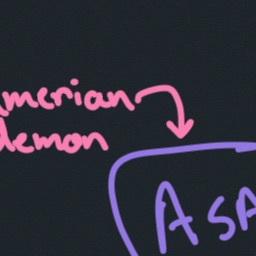 merian
demon
ASA